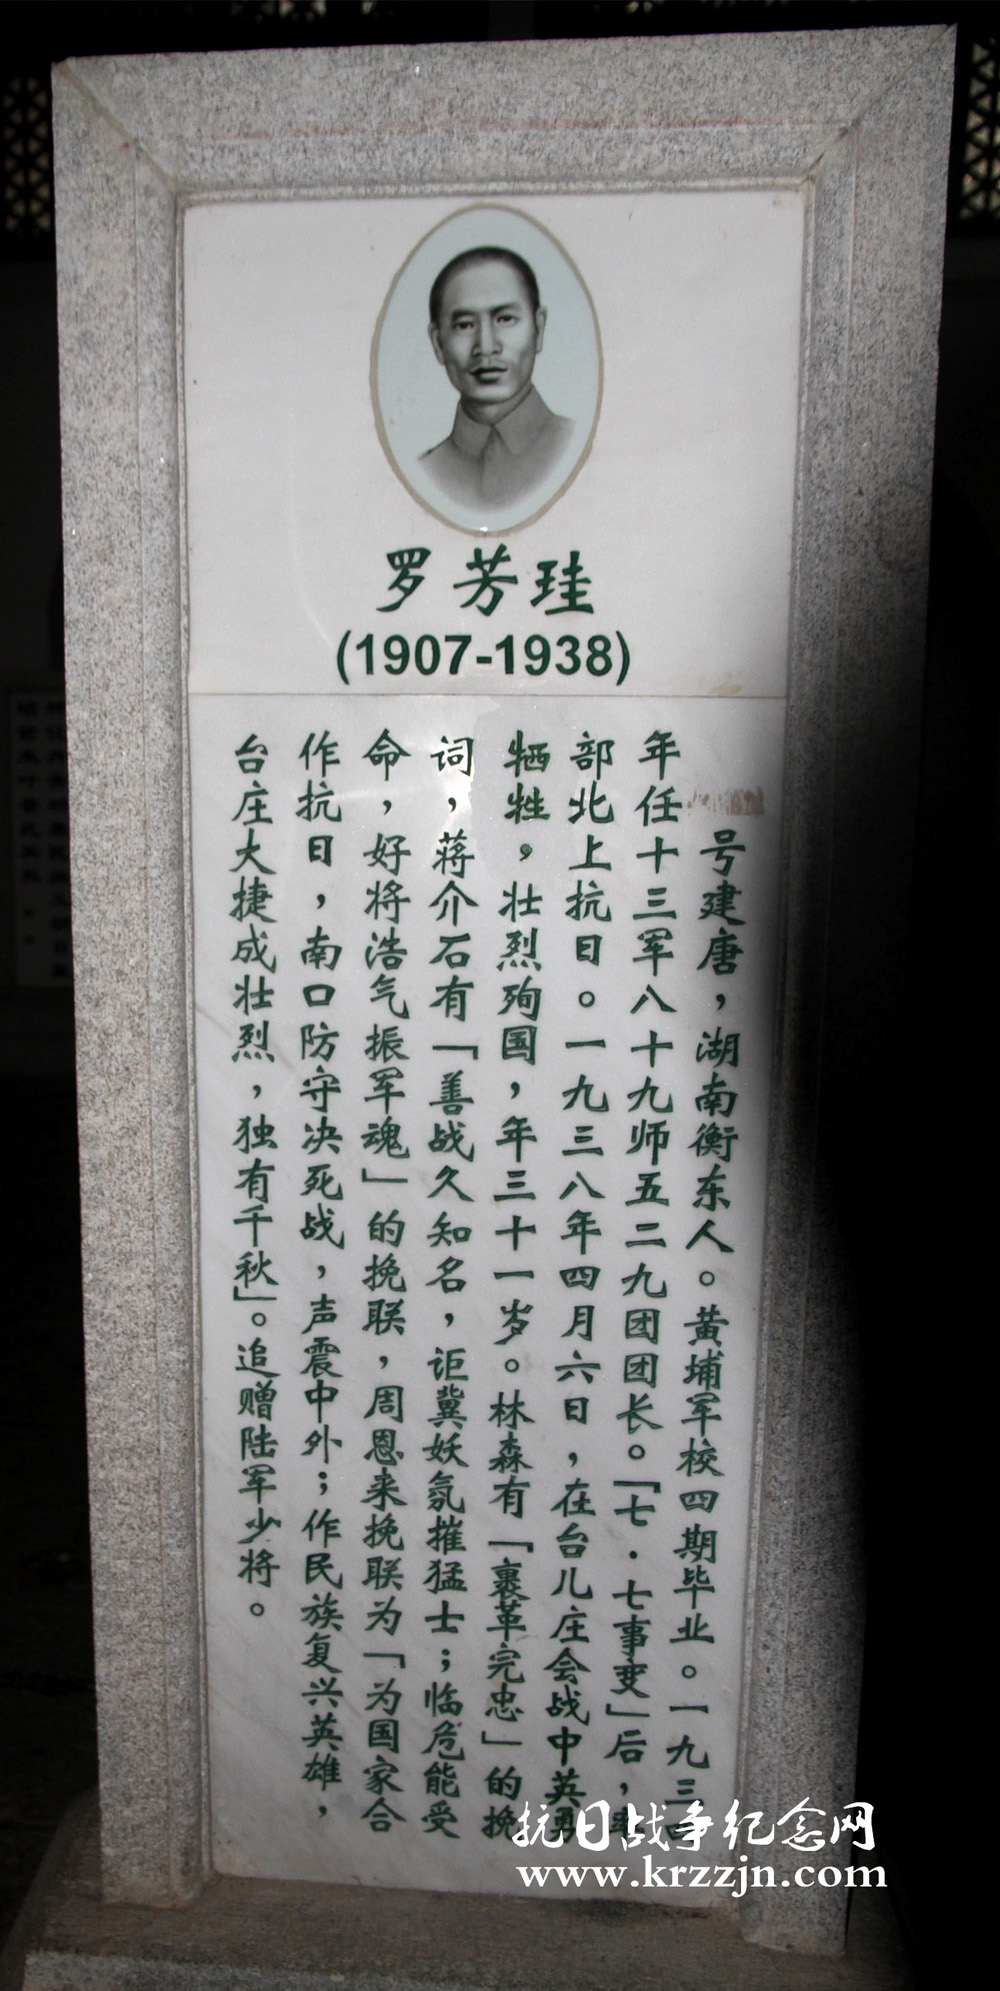 罗芳珪
(1907-1938)
号建唐，湖南衡东人。黄埔军校四期毕业。一九三四
年任十三军八十九师五二九团团长。「七·七事变」后，率
部北上抗日。一九三八年四月六日，在台儿庄会战中英勇
牺牲，壮烈殉国，年三十一岁。林森有「裹革完忠」的挽
词，蒋介石有「善战久知名，讵冀妖氛摧猛士；临危能受
命，好将浩气振军魂」的挽联，周恩来挽联为「为国家合
作抗日，南口防守决死战，声震中外；作民族复兴英雄，
台庄大捷成壮烈，独有千秋」。追赠陆军少将。
抗日战争纪念网
www.krzzjn.com